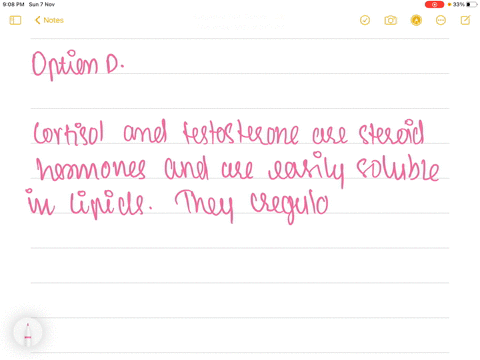 9:08 PM Sun 7 Nov
33%
Notes
Option D.
Cortisol and testosterone are steroid
hormones and are easily soluble
in lipids. They regula